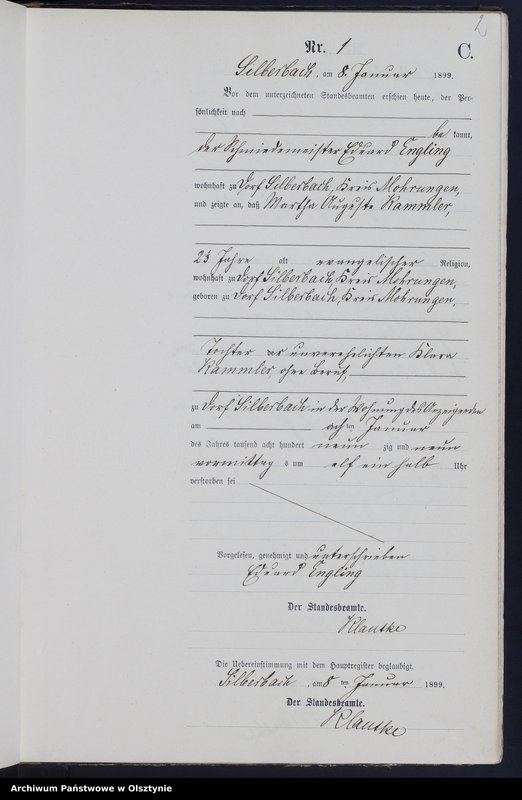 2
Nr. 1
C.
Silberbach, am 8. Januar 1899.
Vor dem unterzeichneten Standesbeamten erschien heute, der Per-
sönlichkeit nach
be kannt,
der Schmiedemeister Eduard Engling
wohnhaft zu Dorf Silberbach, Kreis Mohrungen,
und zeigte an, daß Martha Auguste Rammler,
alt evangelischer Religion,
wohnhaft zu Dorf Silberbach, Kreis Mohrungen,
geboren zu Dorf Silberbach, Kreis Mohrungen,
Tochter der unverehelichten Klara
Rammler, ohne Beruf,
zu Dorf Silberbach in der Wohnung des Anzeigenden
am achten Januar
des Jahres tausend acht hundert neun zig und neun
vormittags um elf ein halb Uhr
verstorben sei
Vorgelesen, genehmigt und unterschrieben
Eduard Engling
Der Standesbeamte.
Klautke
Die Uebereinstimmung mit dem Hauptregister beglaubigt.
Silberbach, am 8ten Januar 1899.
Der Standesbeamte.
Klautke
Archiwum Państwowe w Olsztynie